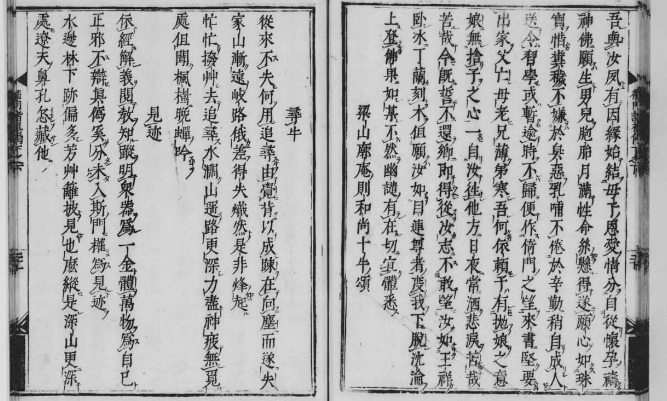 吾與汝夙有因緣始結母子恩愛情分自從懷孕禱
神佛願生男兒胞胎月滿性命絲懸得遂願心如珠
寶惜糞穢不嫌於臭惡乳哺不倦於辛勤稍自成人
送令習學或暫逾時不歸便作倚門之望來書堅要
出家父亡母老兄薄弟寒吾何依賴子有拋娘之意
娘無捨子之心一自汝往他方日夜常洒悲淚苦哉
苦哉今既誓不還鄉即得從汝志不敢望汝如王祥
臥冰丁蘭刻木但願汝如目連尊者度我下脫沈淪
上登佛果如其不然幽譴有在切宜體悉
梁山廓庵則和尚十牛頌
尋牛
從來不失何用追尋由覺背以成疎在向塵而遂失
家山漸遠岐路俄差得失熾然是非烽起
忙忙撥艸去追尋水濶山遥路更深力盡神疲無覓
處但聞楓樹晚蟬吟
見迹
依經解義閱教知蹤明衆器爲一金體萬物爲自己
正邪不辨眞僞奚分未入斯門權爲見迹
水邊林下跡偏多芳艸離披見也麼縱是深山更深
處遼天鼻孔怎藏他